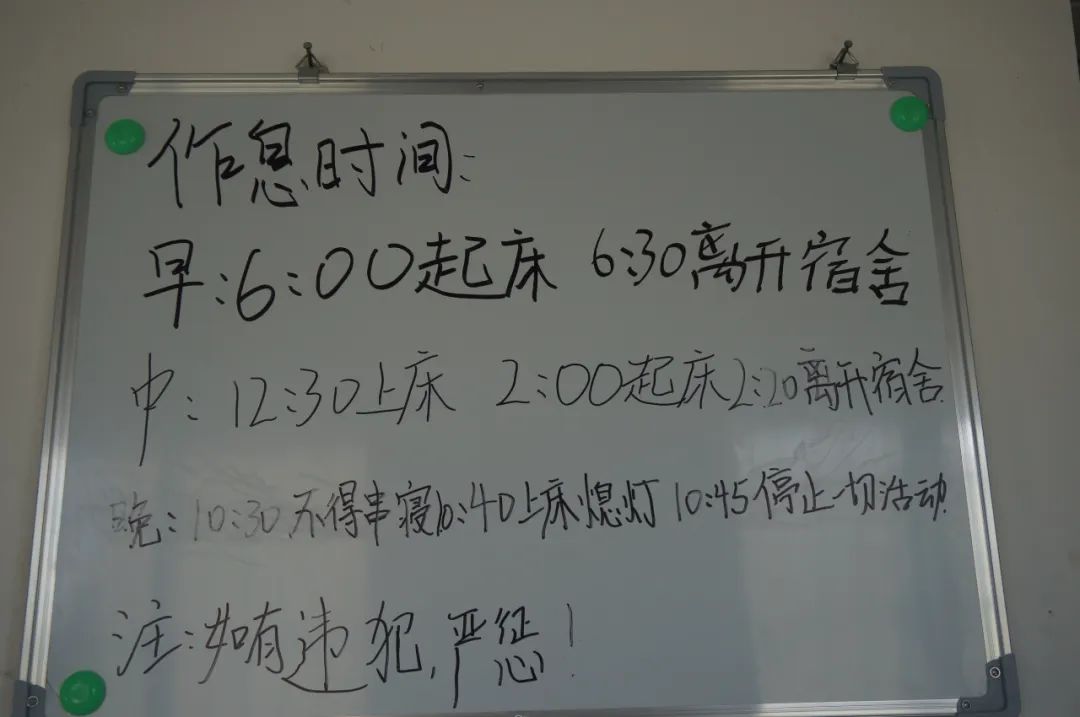 作息时间:
早:6:00起床 6:30离开宿舍
中:12:30上床 2:00起床2:20离开宿舍
晚:10:30不得串寝10:40上床熄灯 10:45停止一切活动
注:如有违犯,严惩!